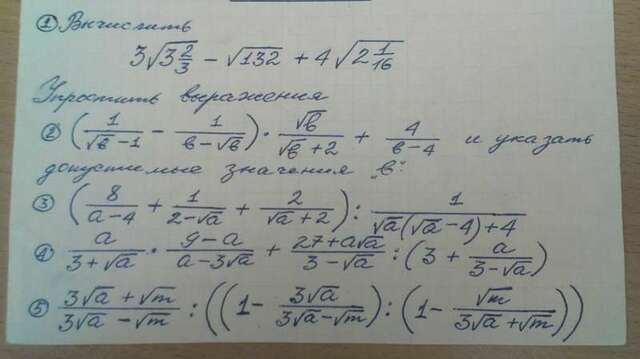 ① Вычислить
3√(3 2/3) − √132 + 4√(2 1/16)
Упростить выражения
② (1/(√в −1) − 1/(в−√в)) · √в/(√в +2) + 4/(в−4) и указать
допустимые значения "в".
③ (8/(a−4) + 1/(2−√a) + 2/(√a +2)) : 1/(√a(√a −4)+4)
④ a/(3+√a) · (9−a)/(a−3√a) + (27+a√a)/(3−√a) : (3 + a/(3−√a))
⑤ (3√a +√m)/(3√a −√m) : ((1− 3√a/(3√a−√m)) : (1− √m/(3√a +√m)))